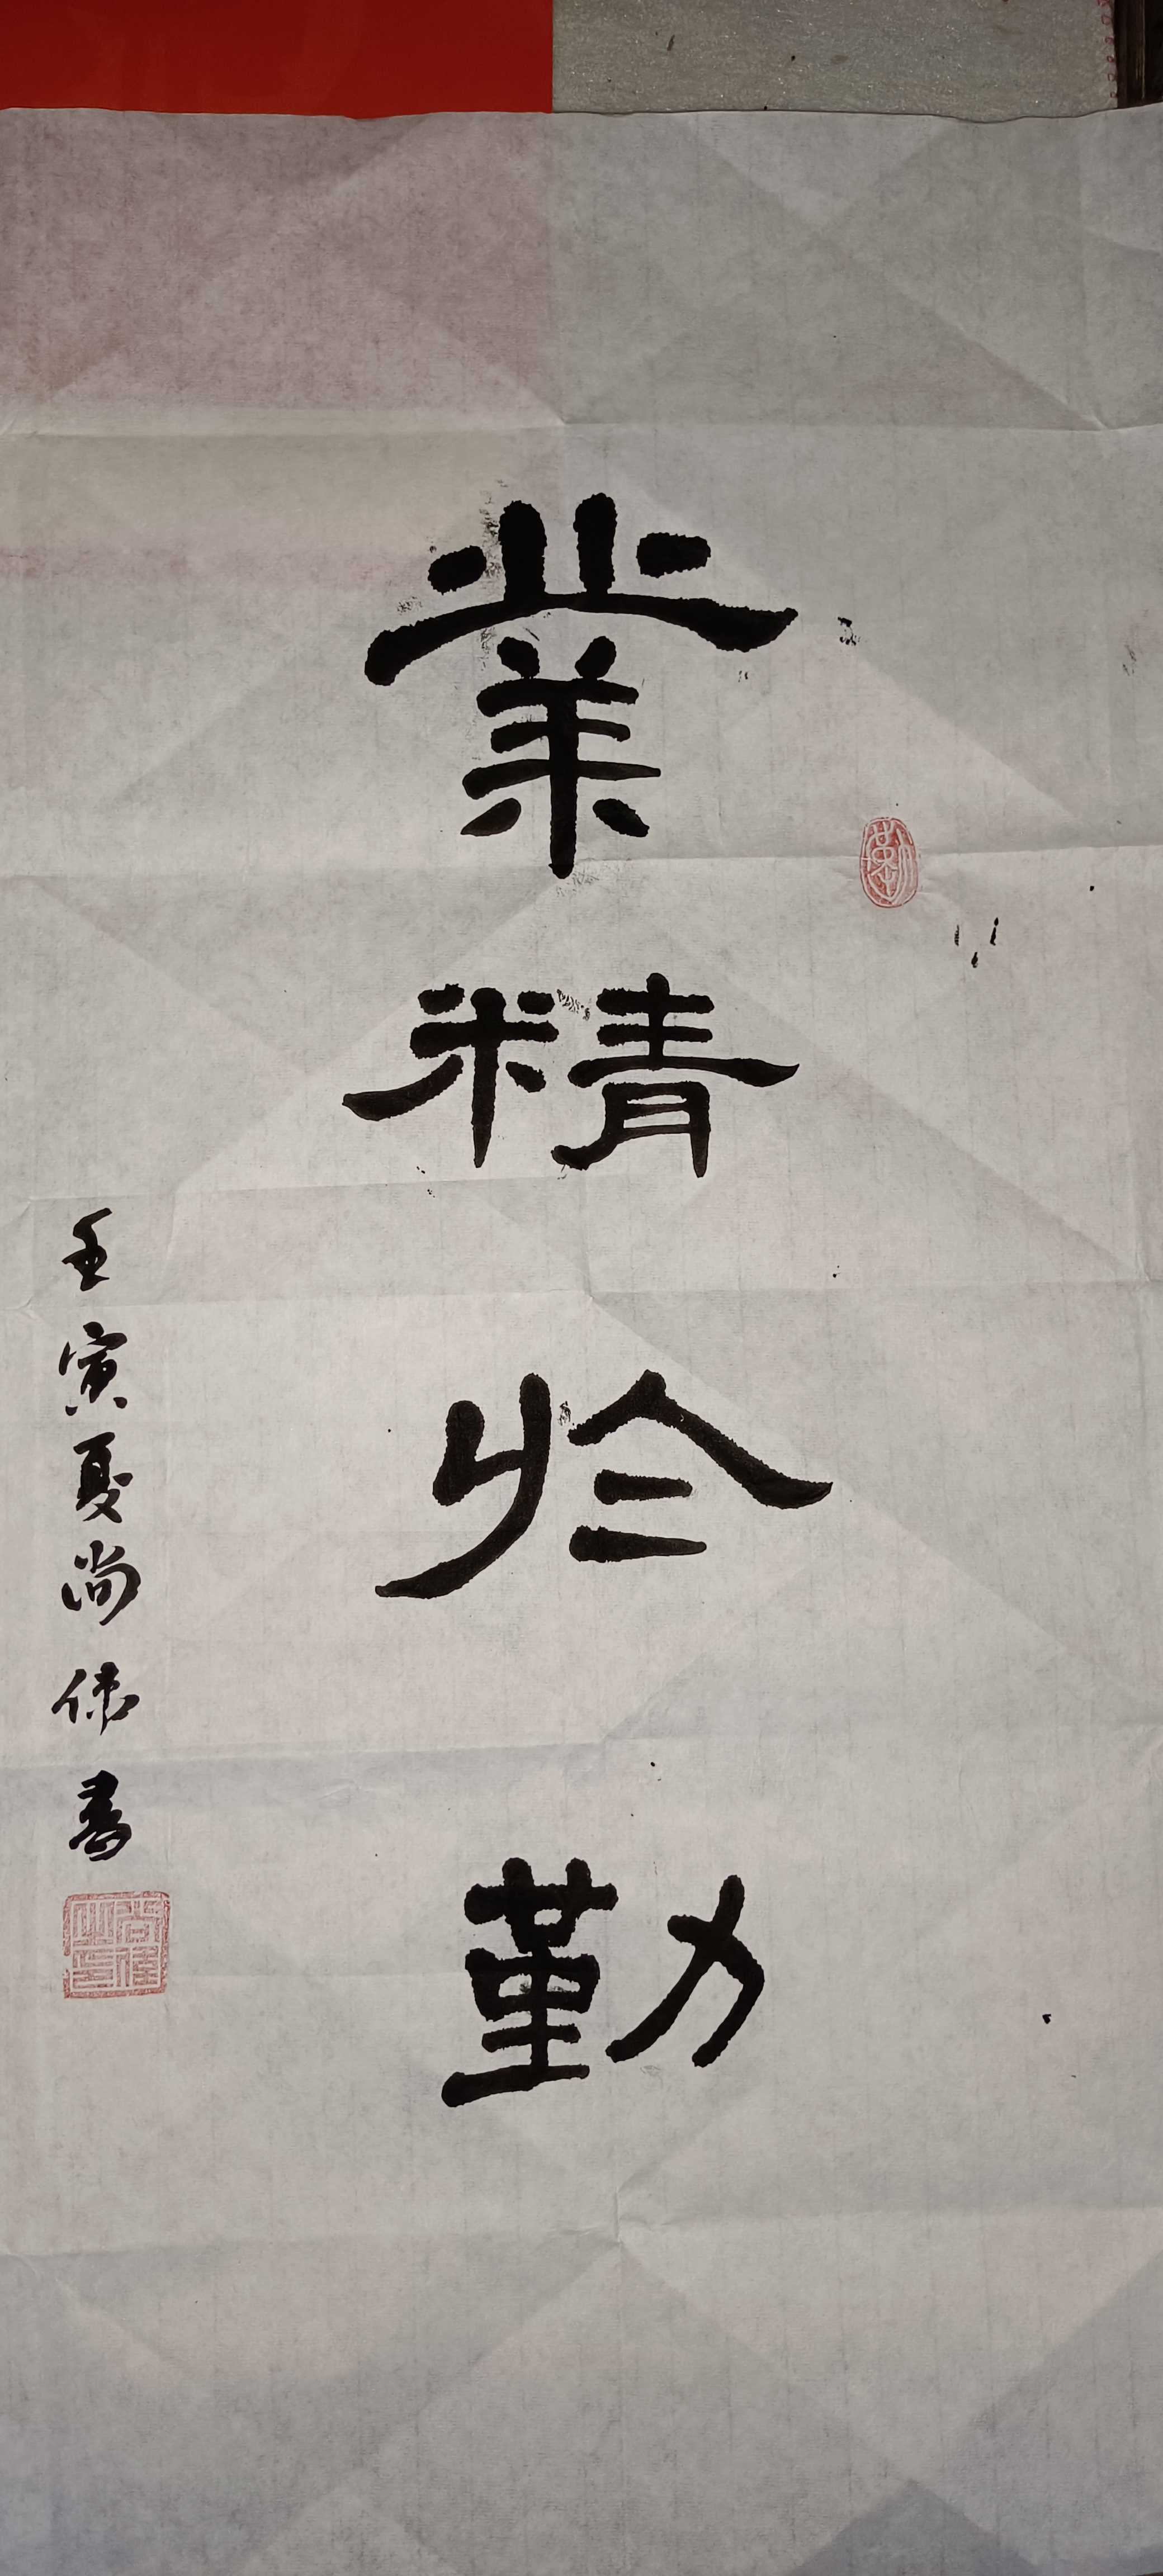 業精於勤
壬寅夏尚伟書